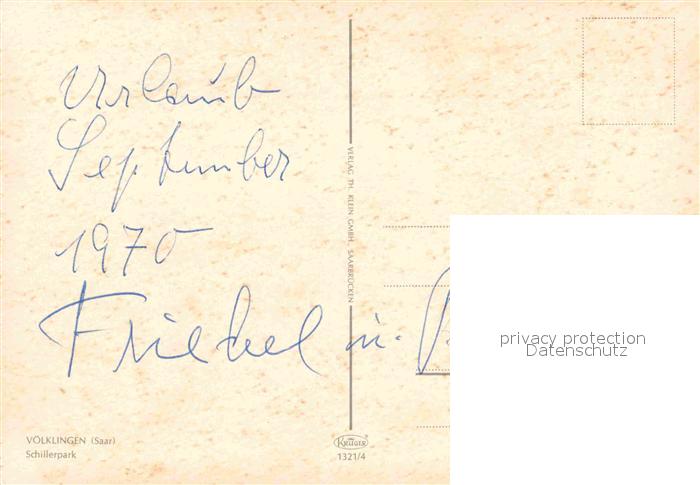 Urlaub
September
1970
Friedel u.
VÖLKLINGEN (Saar)
Schillerpark
VERLAG TH. KLEIN GMBH, SAARBRÜCKEN
KRÜGER
1321/4
privacy protection
Datenschutz